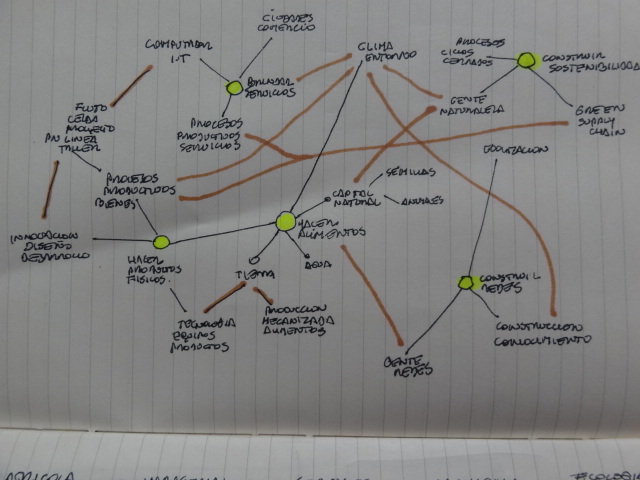 CIUDADES
COMERCIO
COMPUTAR
I.T
CLIMA
ENTORNO
PROCESOS
CICLOS
CERRADOS
CONSTRUIR
SOSTENIBILIDAD
BRINDAR
SERVICIOS
GENTE
NATURALEZA
GREEN
SUPPLY
CHAIN
FLUJO
CELDA
PROYECTO
EN LINEA
TALLER
PROCESOS
PRODUCTIVOS
SERVICIOS
PROCESOS
PRODUCTIVOS
BIENES
CAPITAL
NATURAL
SEMILLAS
ANIMALES
INNOVACION
DISEÑO
DESARROLLO
HACER
PRODUCTOS
FISICOS.
HACER
ALIMENTOS
TIERRA
AGUA
TECNOLOGIA
EQUIPOS
PRODUCTOS
PRODUCCION
MECANIZADA
ALIMENTOS
CONSTRUIR
REDES
CONSTRUCCION
CONOCIMIENTO
GENTE
REDES
AGRICOLA